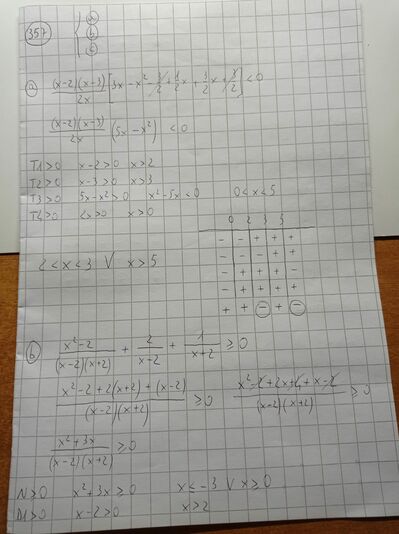 357 { a
b
c
a (x-2)(x-3)/2x [3x - x² - 3/2 + 1/2 x + 3/2 x + 3/2] < 0
(x-2)(x-3)/2x (5x - x²) < 0
T1>0 x-2>0 x>2
T2>0 x-3>0 x>3
T3>0 5x-x²>0 x²-5x<0 0<x<5
T4>0 2x>0 x>0
0 2 3 5
- - + + +
- - - + +
- + + + -
- + + + +
+ + - + -
2<x<3 V x>5
b (x²-2)/((x-2)(x+2)) + 2/(x-2) + 1/(x+2) ≥ 0
(x²-2+2(x+2)+(x-2))/((x-2)(x+2)) ≥ 0 (x²-2+2x+4+x-2)/((x-2)(x+2)) ≥ 0
(x²+3x)/((x-2)(x+2)) ≥ 0
N≥0 x²+3x≥0 x≤-3 V x≥0
D1>0 x-2>0 x>2